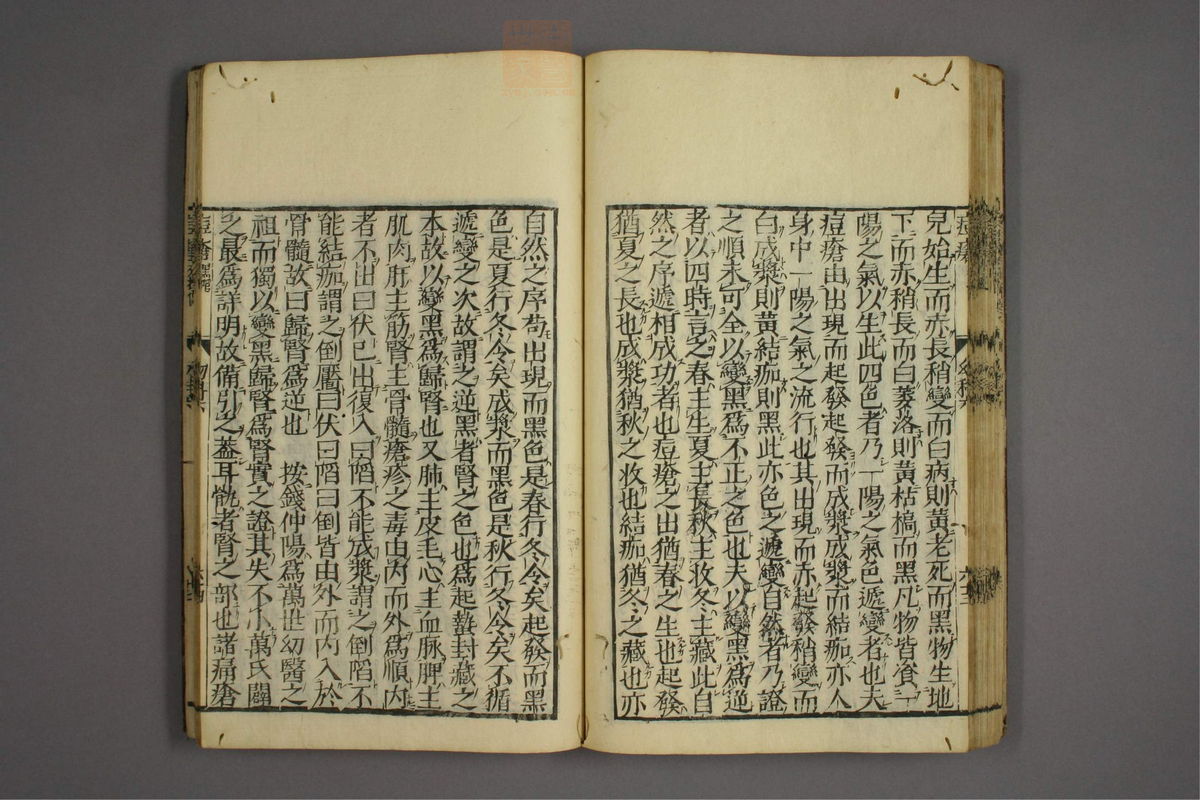 兒始生而赤長稍變而白病則黃老死而黑物生地
下而亦稍長而白萎落則黃枯槁而黑凡物皆食一
陽之氣以生此四色者乃一陽之氣色遞變者也夫
痘瘡由出現而起發起發而成漿成漿而結痂亦人
身中一陽之氣之流行也其出現而赤起發稍變而
白成漿則黃結痂則黑此亦色之遞變自然者乃證
之順未可全以變黑爲不正之色也夫以變黑爲逆
者以四時言之春主生夏主長秋主收冬主藏此自
然之序遞相成功者也痘瘡之出猶春之生也起發
猶夏之長也成漿猶秋之收也結痂猶冬之藏也亦
自然之序苟出現而黑色是春行冬令矣起發而黑
色是夏行冬令矣成漿而黑色是秋行冬令矣不循
遞變之次故謂之逆黑者腎之色也爲起蟄封藏之
本故以變黑爲歸腎也又肺主皮毛心主血脉脾主
肌肉肝主筋腎主骨髓瘡疹之毒由內而外爲順內
者不出曰伏已出復入曰陷不能成漿謂之倒陷不
能結痂謂之倒靨曰伏曰陷曰倒皆由外而內入於
骨髓故曰歸腎爲逆也 按錢仲陽爲萬世幼醫之
祖而獨以變黑歸腎爲腎實之證其失不小萬氏闢
之最爲詳明故備引之蓋耳骩者腎之部也諸痛瘡